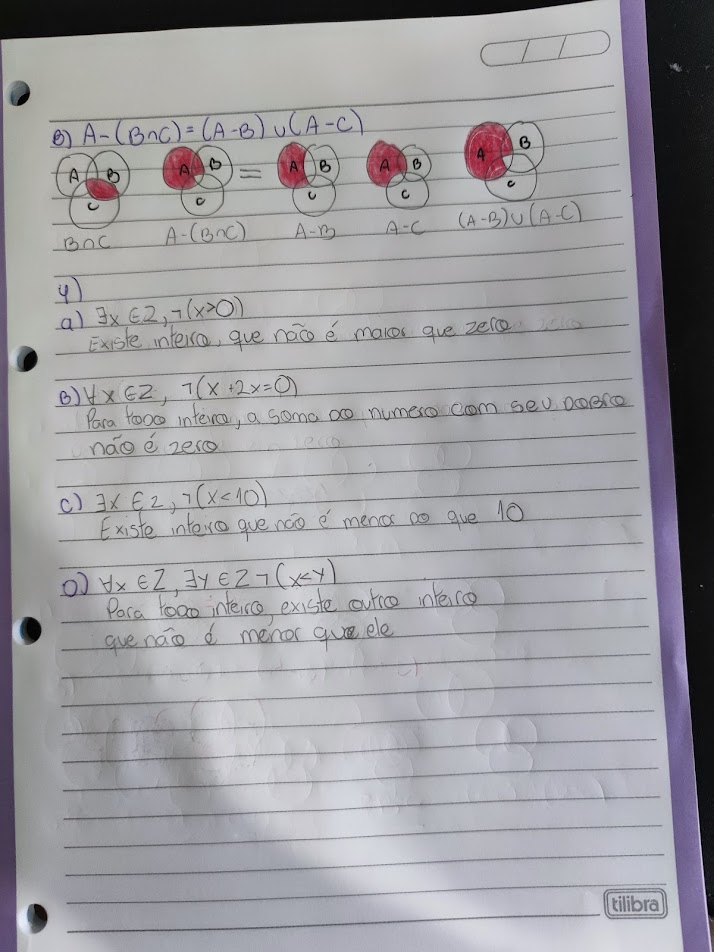 B) A-(B∩C)=(A-B)∪(A-C)
A B C A B C = A B C A B C A B C
B∩C A-(B∩C) A-B A-C (A-B)∪(A-C)
4)
a) ∃x ∈ Z, ¬(x>0)
Existe inteiro, que não é maior que zero
B) ∀x ∈ Z, ¬(x+2x=0)
Para todo inteiro, a soma do numero com seu dobro
não é zero
c) ∃x ∈ z, ¬(x<10)
Existe inteiro que não é menor do que 10
D) ∀x ∈ Z, ∃y ∈ Z ¬(x<y)
Para todo inteiro, existe outro inteiro
que não é menor que ele
tilibra